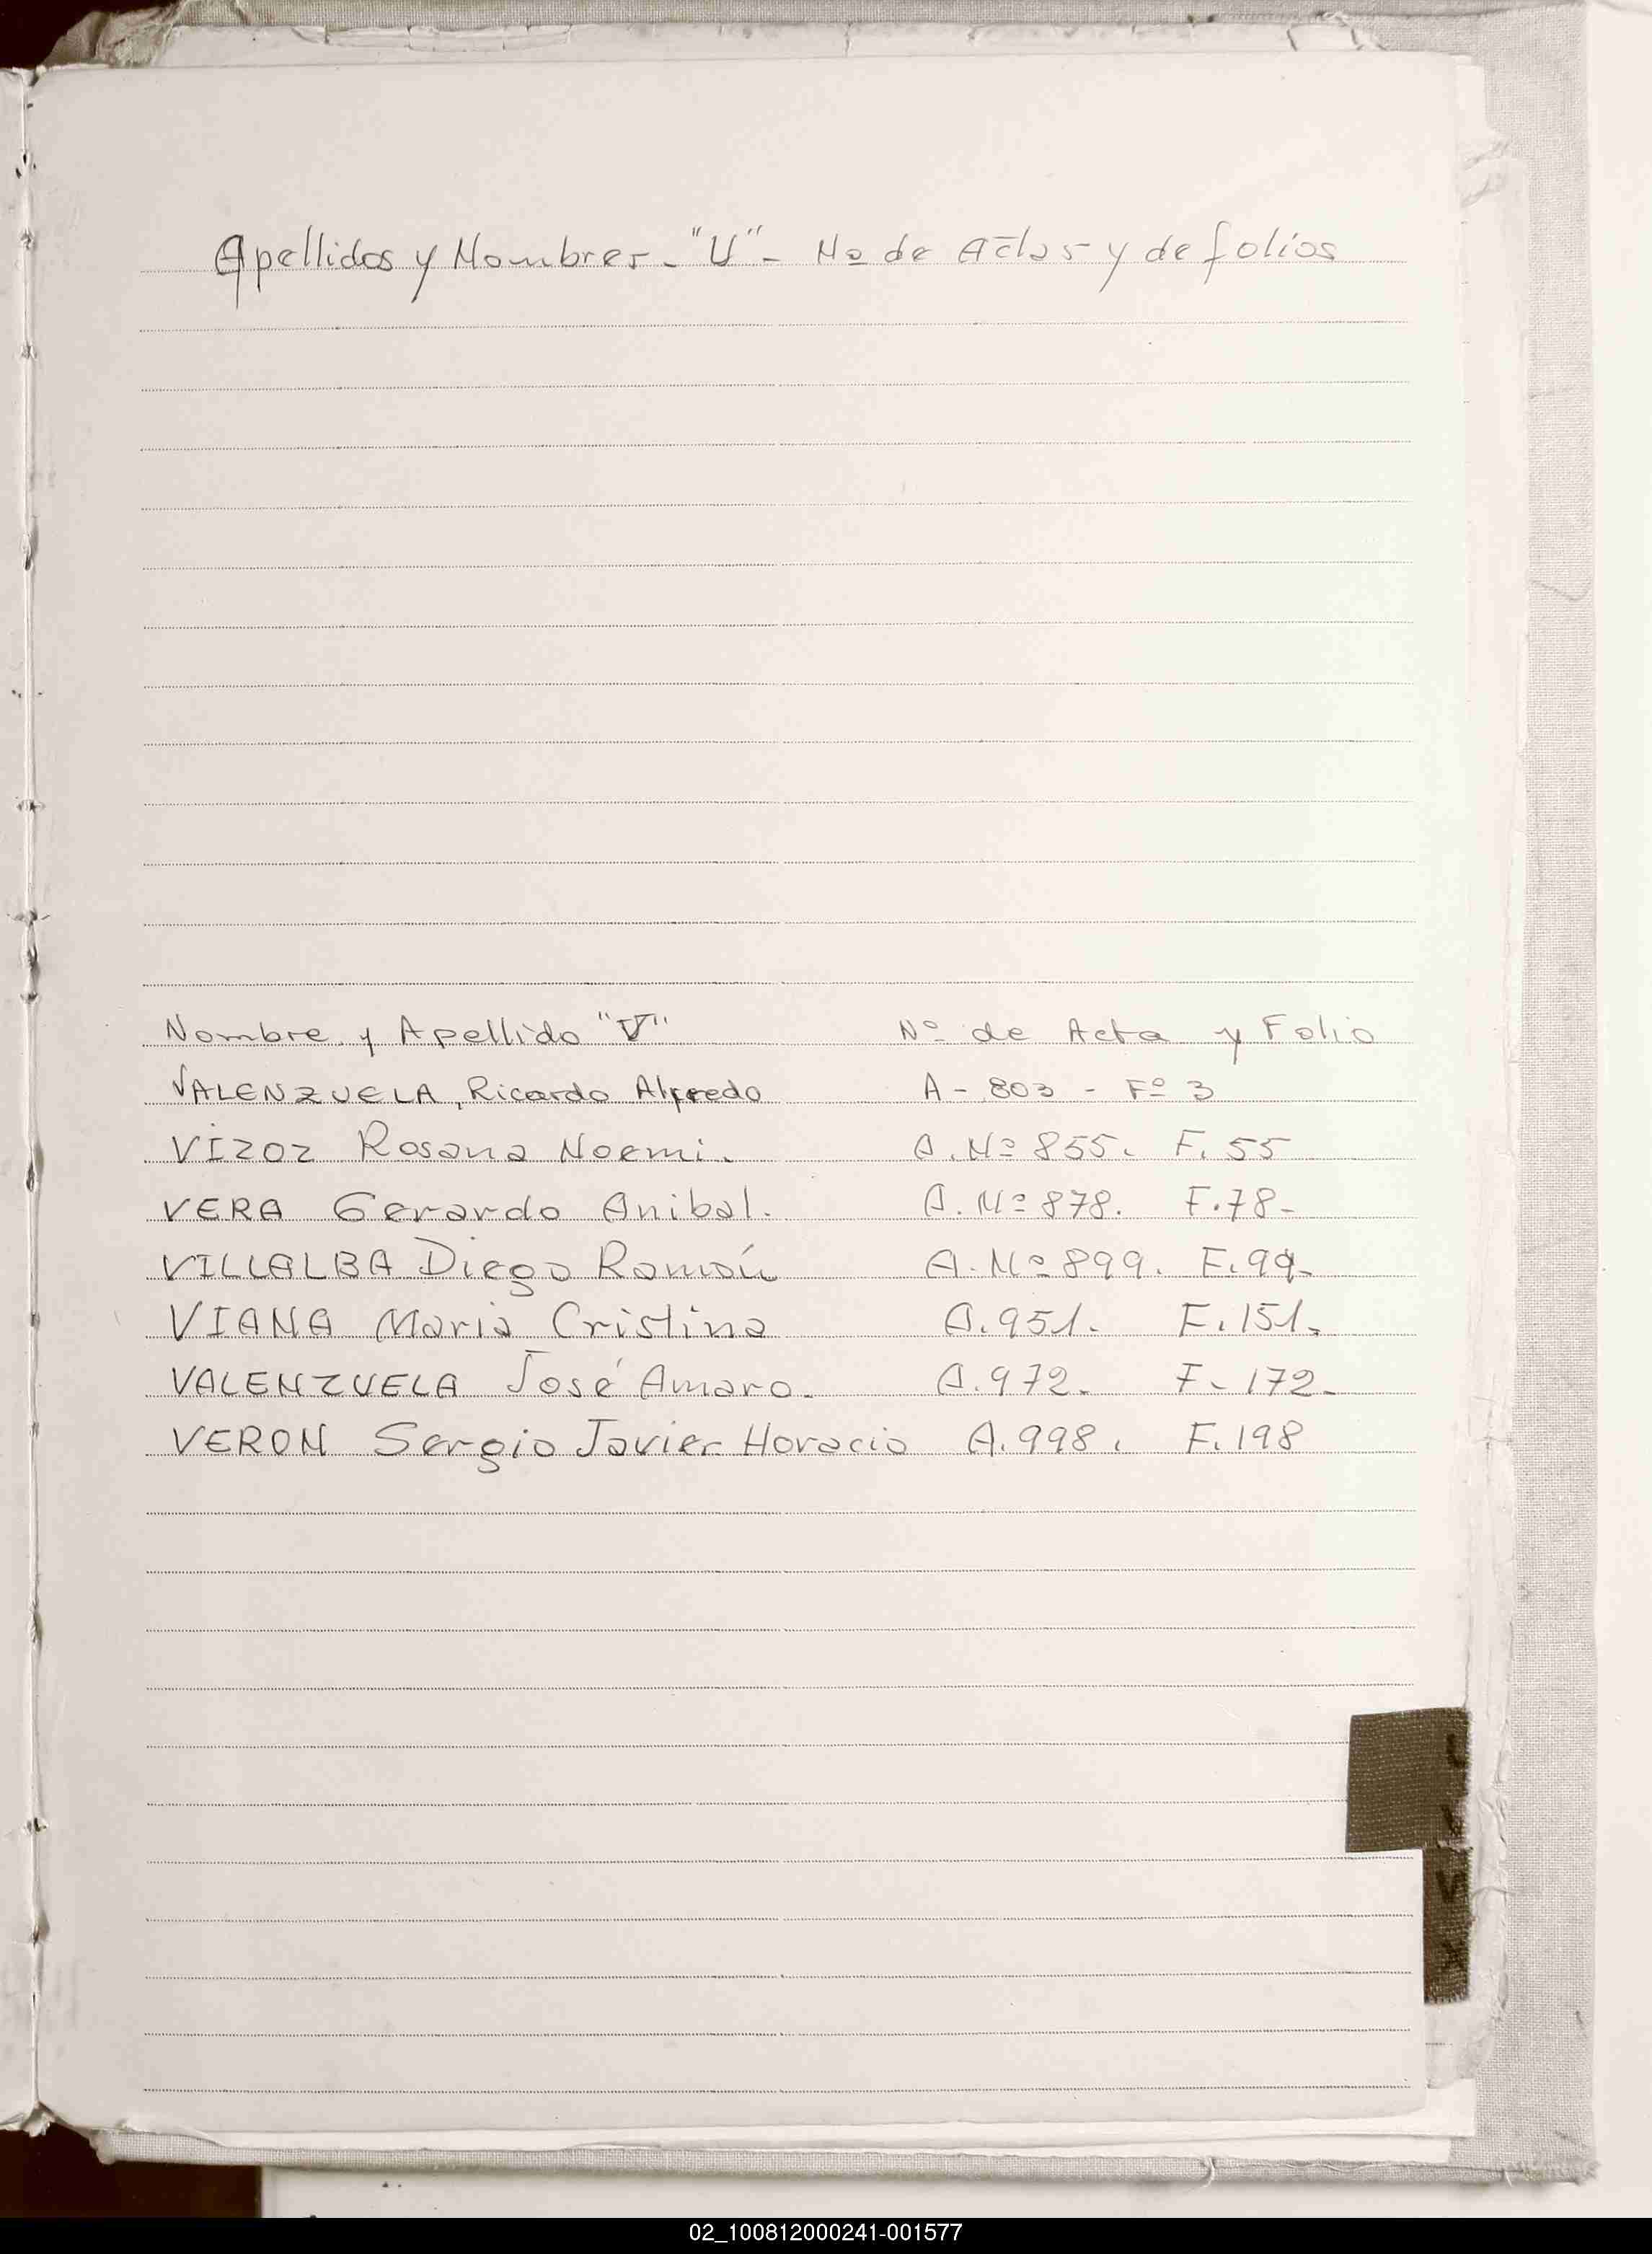 Apellidos y Nombres - "U" - No de Actas y de folios
Nombre y Apellido "V" Nº de Acta y Folio
VALENZUELA, Ricardo Alfredo A - 803 - Fº 3
VIZOZ Rosana Noemi. A. Nº 855. F. 55
VERA Gerardo Anibal. A. Nº 878. F. 78-
VILLALBA Diego Ramón A. Nº 899. F. 99-
VIANA Maria Cristina A. 951. F. 151.
VALENZUELA José Amaro. A. 972. F- 172-
VERON Sergio Javier Horacio A. 998. F. 198
V
X
02_100812000241-001577